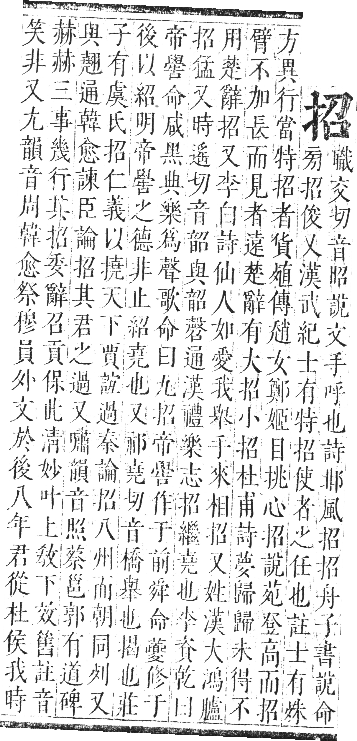 招 職交切音昭說文手呼也詩邶風招招舟子書說命
旁招俊乂漢武紀士有特招使者之任也註士有殊
方異行當特招者貨殖傳趙女鄭姬目挑心招說苑登高而招
臂不加長而見者遠楚辭有大招小招杜甫詩夢歸歸未得不
用楚辭招又李白詩仙人如愛我舉手來相招又姓漢大鴻臚
招猛又時遙切音韶與韶磬通漢禮樂志招繼堯也李賁乾曰
帝嚳命咸黑典樂爲聲歌命曰九招帝嚳作于前舜命夔修于
後以紹明帝嚳之德非止紹堯也又祁堯切音橋舉也揭也莊
子有虞氏招仁義以撓天下賈誼過秦論招八州而朝同列又
與翹通韓愈諫臣論招其君之過又嘯韻音照蔡邕郭有道碑
赫赫三事幾行其招委辭召貢保此淸妙叶上敎下效舊註音
笑非又尤韻音周韓愈祭穆員外文於後八年君從杜侯我時